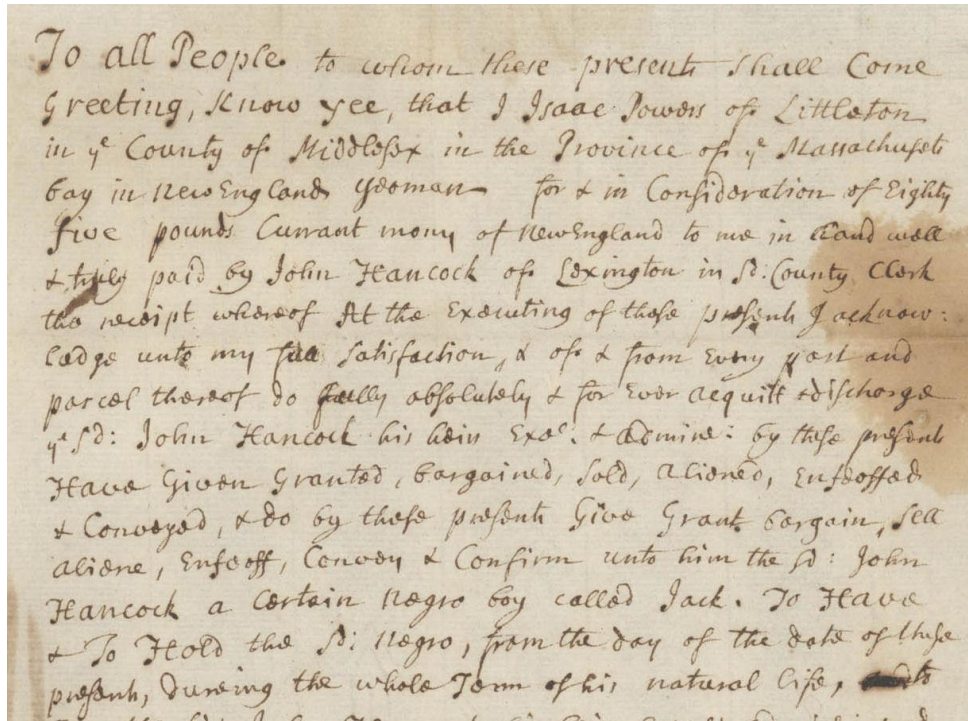 To all People to whom these presents shall Come
Greeting, Know yee, that I Isaac Powers of Littleton
in ye County of Middlesex in the Province of ye Massachusets
bay in New England yeoman for & in Consideration of Eighty
five pounds Currant mony of New England to me in hand well
& truly paid by John Hancock of Lexington in sd: County Clerk
the receipt whereof At the Executing of these presents I acknow:
ledge unto my full satisfaction, & of & from Every part and
parcel thereof do fully absolutely & for Ever acquitt & discharge
ye sd: John Hancock his heirs Exec. & admine: by these presents
Have Given Granted, bargained, sold, aliened, Enfeoffed
& Conveyed, & do by these presents Give Grant bargain, sell
aliene, Enfeoff, Convey & Confirm unto him the sd: John
Hancock a certain Negro boy called Jack. To Have
& To Hold the sd: Negro, from the day of the date of these
presents, dureing the whole Term of his natural life,